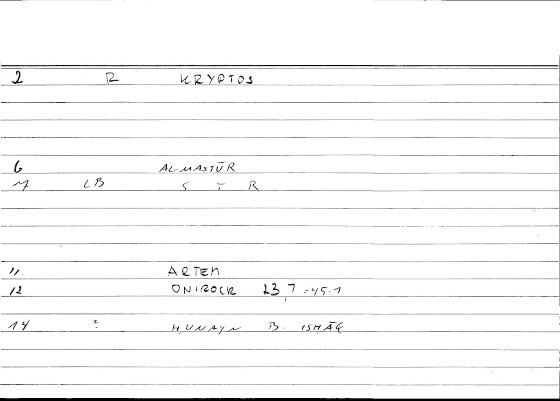 2 R KRYPTOS
6 AL-MASTŪR
M LB S T R
11 ARTEM
12 ONIROCR 23,7 = 45.1
14 ? ḤUNAYN B. ISḤĀQ